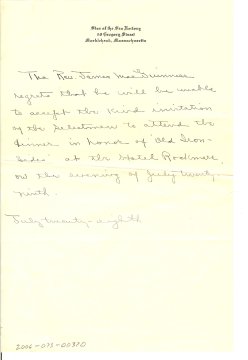 Star of the Sea Rectory
18 Gregory Street
Marblehead, Massachusetts
The Rev. James MacGuinness
regrets that he will be unable
to accept the kind invitation
of the Selectmen to attend the
dinner in honor of "Old Iron-
sides" at the Hotel Rockmere
on the evening of July twenty-
ninth.
July twenty-eighth
2006-073-0037D